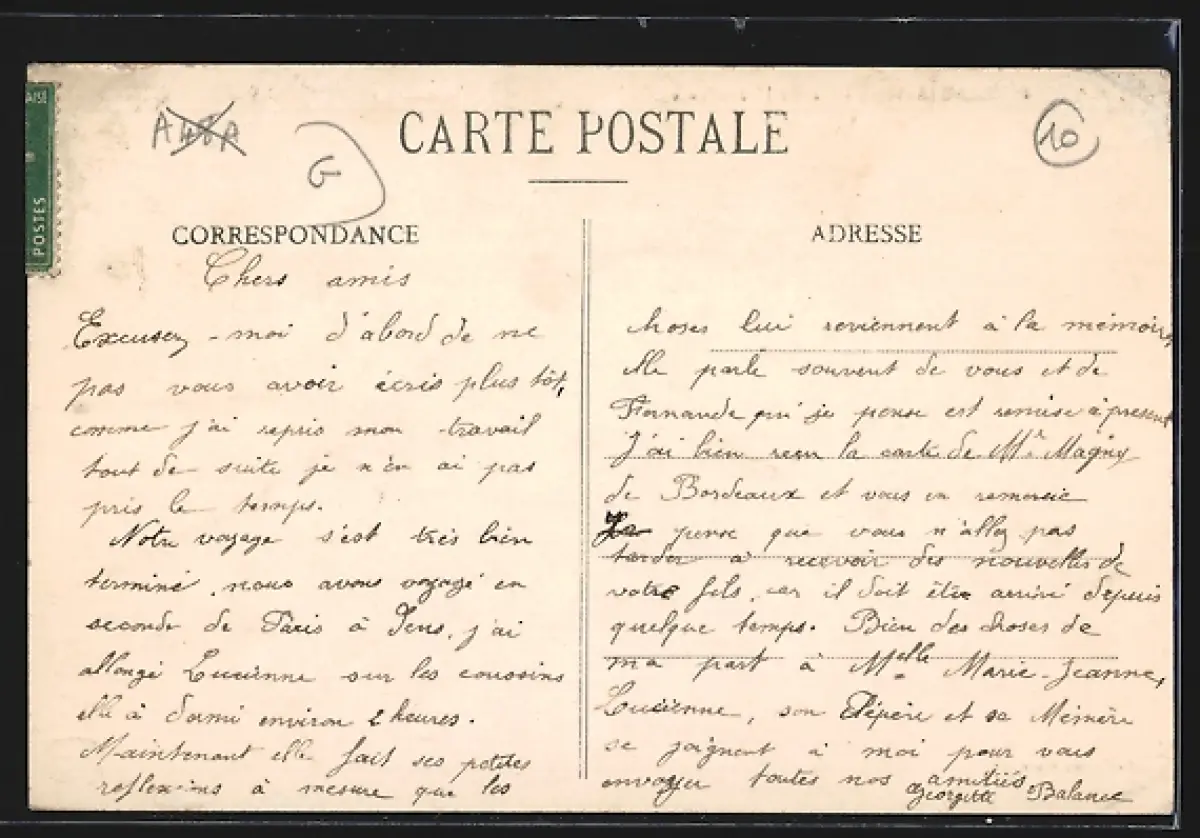 AISE
POSTES
G
CARTE POSTALE
10
CORRESPONDANCE
Chers amis
Excusez-moi d'abord de ne
pas vous avoir écris plus tôt,
comme j'ai repris mon travail
tout de suite je n'en ai pas
pris le temps.
Notre voyage s'est très bien
terminé, nous avons voyagé en
seconde de Paris à Sens, j'ai
allongé Lucienne sur les coussins
elle à dormi environ 2 heures.
Maintenant elle fait ses petites
reflexions à mesure que les
ADRESSE
choses lui reviennent à la mémoire,
Me parle souvent de vous et de
Fernande qui je pense est remise à présent
J'ai bien reçu la carte de Mr Magny
de Bordeaux et vous en remercie
Je pense que vous n'allez pas
tarder à recevoir des nouvelles de
votre fils, car il doit être arrivé depuis
quelque temps. Bien des choses de
ma part à Melle Marie-Jeanne,
Lucienne, son Pépère et sa Mémère
se joignent à moi pour vous
envoyer toutes nos amitiés
Georgette Balance